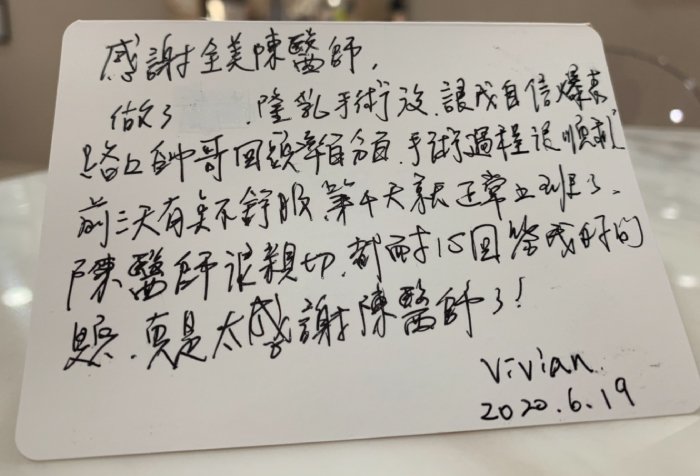 感謝全美陳醫師,
做了 隆乳手術後,讓我自信爆表
路上帥哥回頭率百分百,手術過程很順利
前三天有點不舒服 第4天就正常上班了、
陳醫師很親切,都耐心回答我的問
題,真是太感謝陳醫師了!
Vivian
2020.6.19